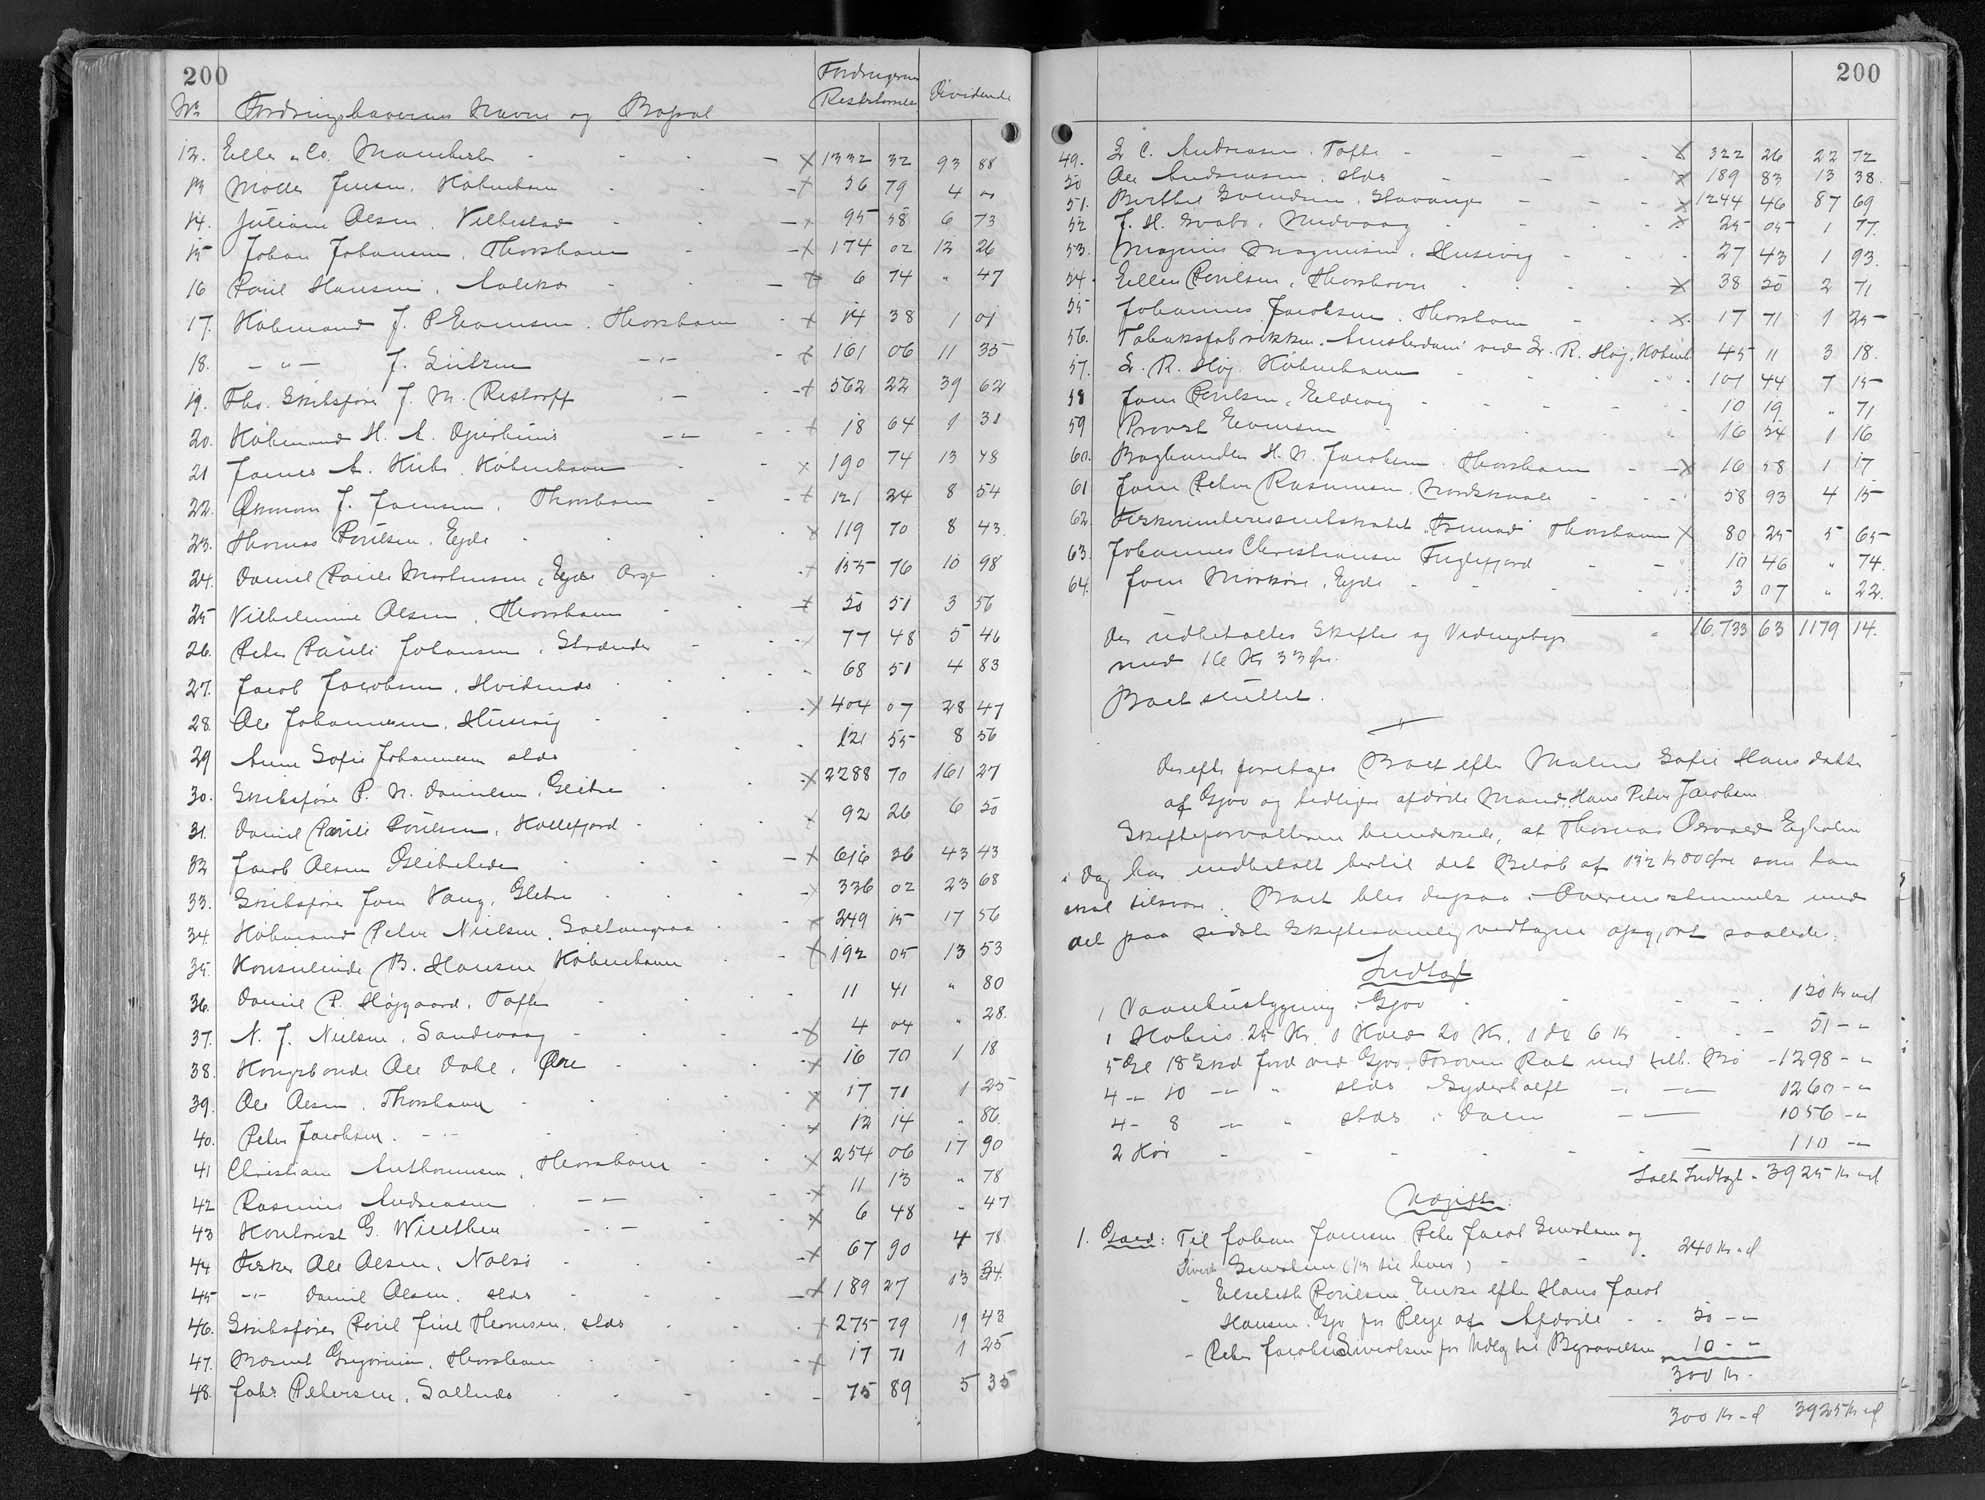 200
No Fordringshavernes Navne og Bopæl Fordringernes Restbeløb Dividende
12. Eills & Co. Manchester - X 1332 32 93 88
13 Møller Jensen, København - X 56 79 4 "
14. Juliane Olsen, Velbestad - X 95 58 6 73
15 Johan Johansen, Thorshavn - X 174 02 12 26
16 Poul Hansen, - X 6 74 " 47
17. Købmand J. P. Evensen, Thorshavn - X 14 38 1 01
18. - " - J. Lützen - " - X 161 06 11 35
19. Fhv. Skibsfører J. M. Restorff - X 562 22 39 62
20. Købmand H. A. Djurhuus - " - X 18 64 1 31
21 James A. Hübs. København X 190 74 13 48
22. J. Joensen, Thorshavn - X 121 24 8 54
23. Thomas Poulsen, Ejde X 119 70 8 43
24. Daniel Pauli Mortensen, Ejde X 155 76 10 98
25 Vilhelmine Olsen, Thorshavn X 50 51 3 56
26. Peter Pauli Johansen, Strænder - 77 48 5 46
27. Jacob Jacobsen, Hvidenæs 68 51 4 83
28. Ole Johannesen, Husevig X 404 07 28 47
29 Anne Sofie Johannesen sstds 121 55 8 56
30. Skibsfører P. N. Danielsen, Glibre X 2288 70 161 27
31. Daniel Pauli Poulsen, Kollefjord X 92 26 6 50
32 Jacob Olsen - X 616 36 43 43
33. Skibsfører Joen Vang, Glibre X 336 02 23 68
34. Købmand Peter Nielsen, Saltangraa X 249 15 17 56
35. Konsulinde B. Hansen København X 192 05 13 53
36. Daniel P. Højgaard, Tofte 11 41 " 80
37. N. J. Nielsen, Sandevaag X 4 04 " 28.
38. Kongsbonde Ole Dahl, Øre X 16 70 1 18
39. Ole Olsen, Thorshavn X 17 71 1 25
40. Peter Jacobsen. - " - X 12 14 " 86.
41 Christian Anthoniusen, Thorshavn X 254 06 17 90
42 Rasmus Andreasen - " - X 11 13 " 78
43 Kontorist G. Winther - " - X 6 48 " 47
44 Fisker Ole Olsen, Nolsø X 67 90 4 78
45 - " - Daniel Olsen, sstds X 189 27 13 34.
46. Skibsfører Poul Juul Thomsen, sstds X 275 79 19 43
47. Rasmus Gregersen, Thorshavn X 17 71 1 25
48. Johs Petersen, Saltnæs - 75 89 5 35
200
49. L C. Andreasen. Tofte X 322 26 22 72
50 Ole Andreasen, sstds X 189 83 13 38.
51. Berthel Svendsen, Stavanger X 1244 46 87 69
52 J. H. Svabo, Midvaag X 25 05 1 77.
53. Magnus Magnussen, Husevig 27 43 1 93.
54. Ellen Poulsen, Thorshavn X 38 50 2 71
55 Johannes Jacobsen, Thorshavn X 17 71 1 25
56. Tobaksfabrikken "Amsterdam" ved L. R. Høj, Købnh 45 11 3 18.
57. L. R. Høj. København 101 44 7 15
58 Joen Poulsen, Eldevig 10 19 " 71
59 Provst Evensen 16 54 1 16
60. Bogbinder H. N. Jacobsen. Thorshavn X 16 58 1 17
61 Joen Peter Rasmussen. Nordskaale 58 93 4 15
62. "Fremad" Thorshavn X 80 25 5 65
63. Johannes Christiansen Fuglefjord 10 46 " 74.
64. Joen Mørkøre, Ejde 3 07 " 22.
16,733 63 1179 14.
Der udbetaltes Skifte og Vidnegebyr
med 16 Kr 33 Øre.
Boet sluttet.
Derefter foretages Boet efter Malene Sofie Hansdatter
af Gjov og tidligere afdøde Mand, Hans Peter Jacobsen.
Skifteforvalteren bemærkede, at Thomas Osvald Egholm
i Dag har indbetalt hertil det Beløb af 132 Kr 00 Øre som han
skal tilsvare. Boet blev derpaa i Overensstemmelse med
det paa sidste Skiftesamling vedtagne opgjort saaledes:
Indtægt
1 Vaanhusbygning i Gjov 150 Kr " Ø
1 Kobrus 25 Kr. 1 Kvie 20 Kr. 1 do 6 Kr 51 - "
5 Gl 18 Skd Jord ved Gjov. Foroven Rot med tilb. - 1298 - "
4 - " 10 - " - " sstds Gyderhalft - " - 1260 - "
4 - 8 - " - " sstds i Dalen - 1056 - "
2 Kør - 110 - "
Ialt Indtægt. 3925 Kr " Ø
Udgift.
1. Gæld: Til Johan Joensen Peter Jacob Sivertsen og
Sivert Sivertsen (⅓ til hver) 240 Kr " Ø
- Elsebeth Poulsen, Enke efter Hans Jacob
Hansen, Gjov for Pleje af Afdøde 50 - "
- Peter Jacobsen Sivertsen for Udlæg til Begravelsen 10 - "
300 Kr -
300 Kr " Ø 3925 Kr " Ø